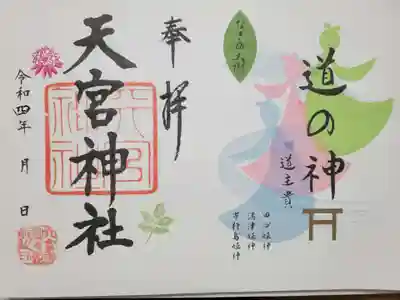 道の神
道主貴
田心姫神
湍津姫神
市杵島姫神
奉拝
天宮神社
令和四年 月 日